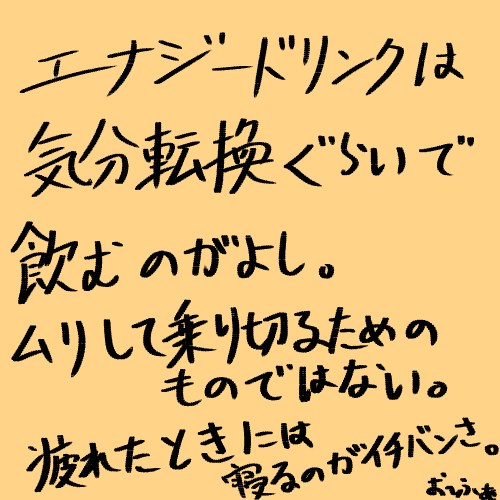 エナジードリンクは
気分転換ぐらいで
飲むのがよし。
ムリして乗り切るための
ものではない。
疲れたときには
寝るのがイチバンさ。